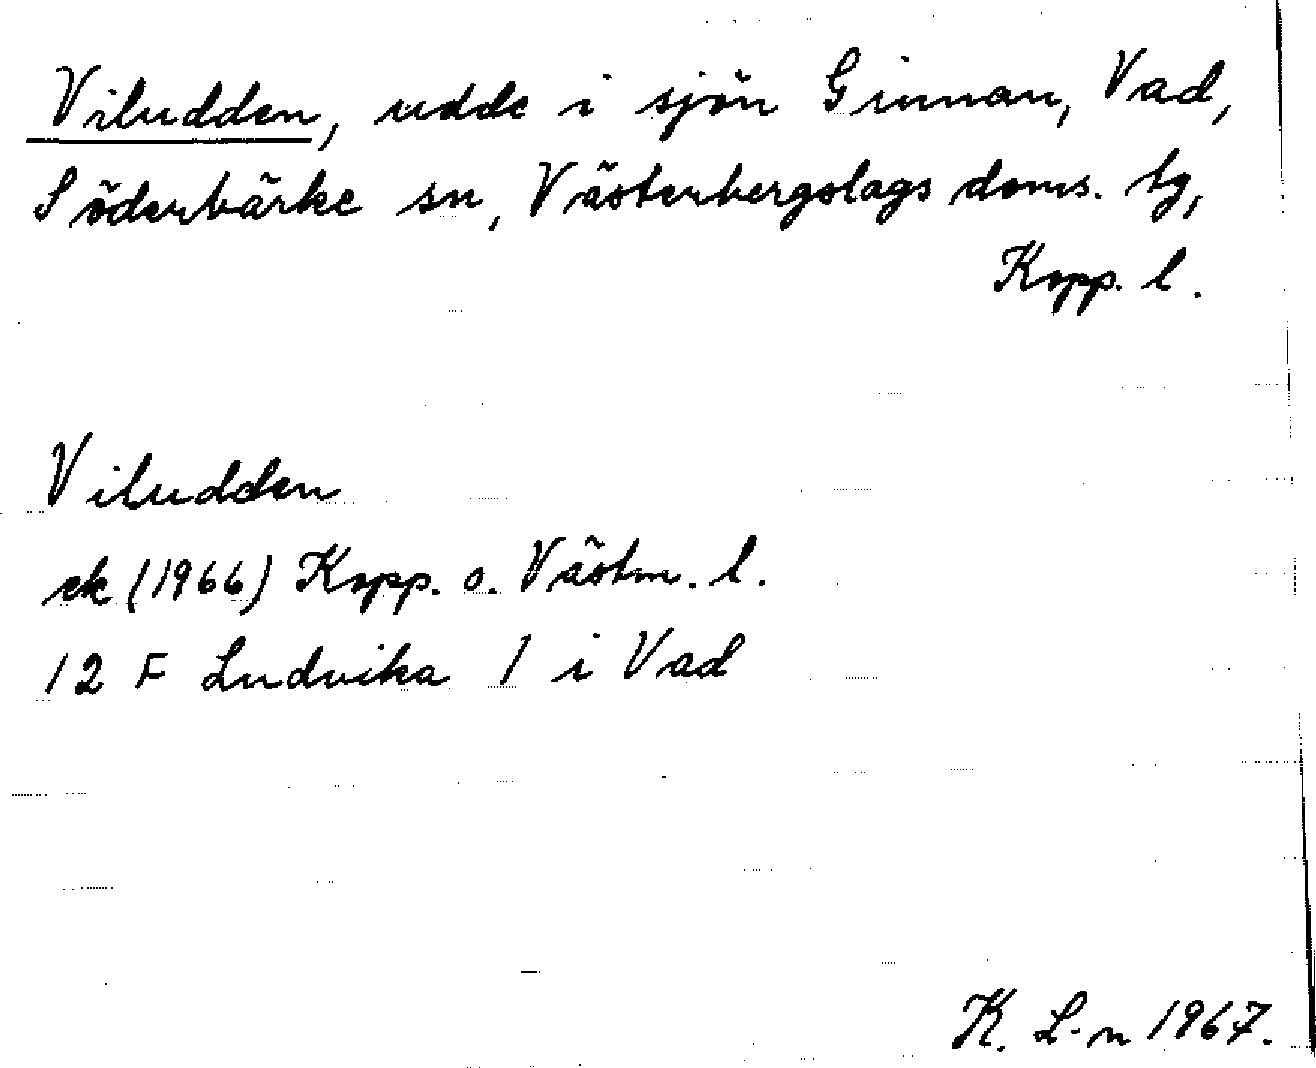 Viludden, udde i sjön Grinnan, Vad,
Söderbärke sn, Västerbergslags doms. tg,
Kopp. l.
Viludden
ek (1966) Kopp. o. Västm. l.
12 F Ludvika 1 i Vad
K. L-n 1967.